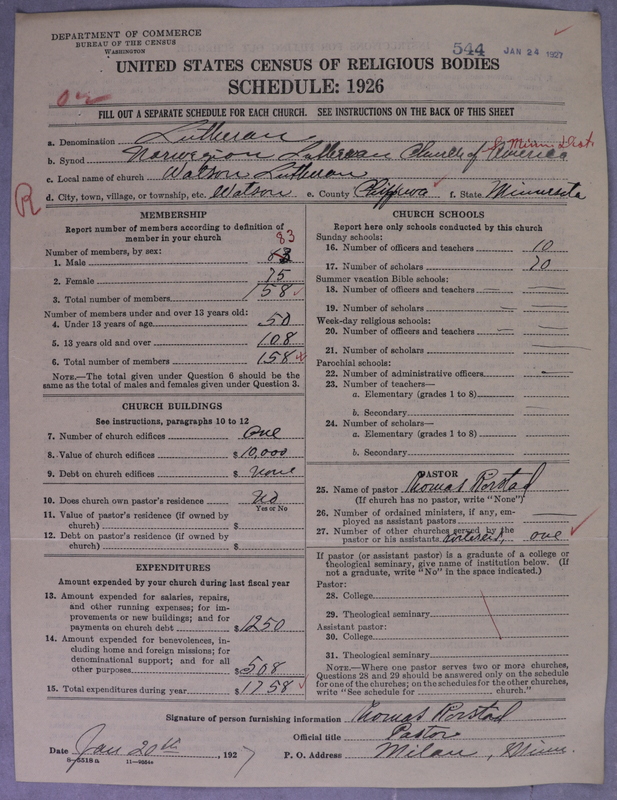 DEPARTMENT OF COMMERCE
BUREAU OF THE CENSUS
WASHINGTON
544 JAN 24 1927
UNITED STATES CENSUS OF RELIGIOUS BODIES
SCHEDULE: 1926
FILL OUT A SEPARATE SCHEDULE FOR EACH CHURCH. SEE INSTRUCTIONS ON THE BACK OF THIS SHEET
a. Denomination Lutheran
b. Synod Norwegian Lutheran Church of America
c. Local name of church Watson Lutheran
d. City, town, village, or township, etc. Watson e. County Chippewa f. State Minnesota
R
MEMBERSHIP
Report number of members according to definition of
member in your church
83
Number of members, by sex:
1. Male 83
2. Female 75
3. Total number of members 158
Number of members under and over 13 years old:
4. Under 13 years of age 50
5. 13 years old and over 108
6. Total number of members 158
NOTE.—The total given under Question 6 should be the
same as the total of males and females given under Question 3.
CHURCH BUILDINGS
See instructions, paragraphs 10 to 12
7. Number of church edifices One
8. Value of church edifices $10,000
9. Debt on church edifices $ None
10. Does church own pastor's residence No
Yes or No
11. Value of pastor's residence (if owned by
church) $
12. Debt on pastor's residence (if owned by
church) $
EXPENDITURES
Amount expended by your church during last fiscal year
13. Amount expended for salaries, repairs,
and other running expenses; for im-
provements or new buildings; and for
payments on church debt $1250
14. Amount expended for benevolences, in-
cluding home and foreign missions; for
denominational support; and for all
other purposes $508
15. Total expenditures during year $1758
CHURCH SCHOOLS
Report here only schools conducted by this church
Sunday schools:
16. Number of officers and teachers 10
17. Number of scholars 70
Summer vacation Bible schools:
18. Number of officers and teachers
19. Number of scholars
Week-day religious schools:
20. Number of officers and teachers
21. Number of scholars
Parochial schools:
22. Number of administrative officers
23. Number of teachers—
a. Elementary (grades 1 to 8)
b. Secondary
24. Number of scholars—
a. Elementary (grades 1 to 8)
b. Secondary
PASTOR
25. Name of pastor Thomas Rorstad
(If church has no pastor, write "None")
26. Number of ordained ministers, if any, em-
ployed as assistant pastors
27. Number of other churches served by the
pastor or his assistants one
If pastor (or assistant pastor) is a graduate of a college or
theological seminary, give name of institution below. (If
not a graduate, write "No" in the space indicated.)
Pastor:
28. College
29. Theological seminary
Assistant pastor:
30. College
31. Theological seminary
NOTE.—Where one pastor serves two or more churches,
Questions 28 and 29 should be answered only on the schedule
for one of the churches; on the schedules for the other churches,
write "See schedule for church."
Signature of person furnishing information Thomas Rorstad
Official title Pastor
Date Jan 20th, 1927 P. O. Address Milan, Minn.
8-5518 a 11-9554